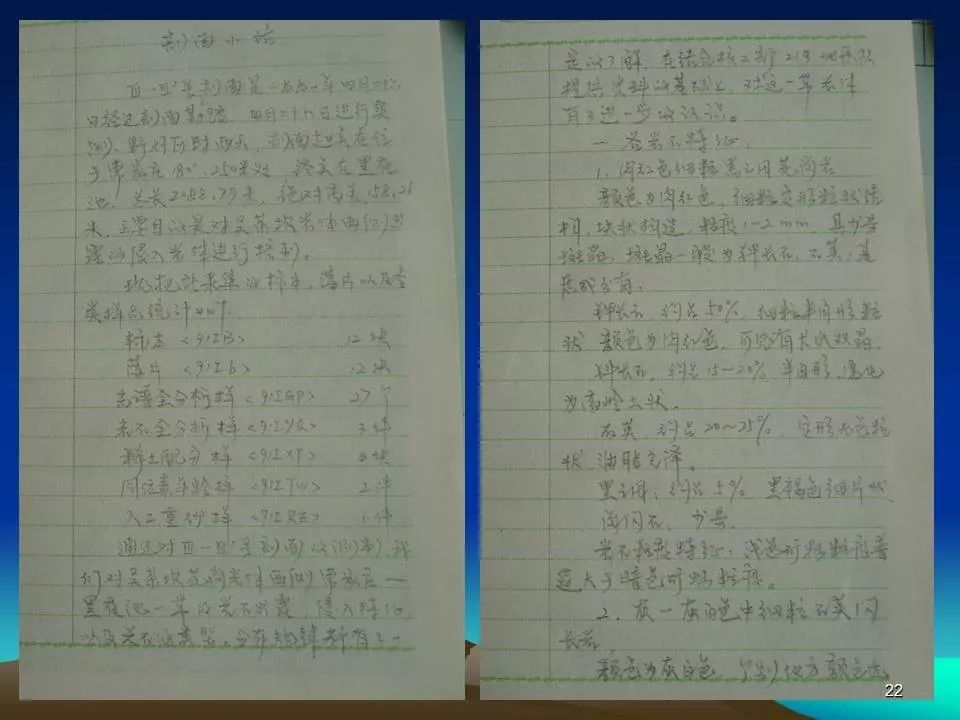 剖面小结
Ⅱ—Ⅱ'号剖面是一九九一年四月二十六
日经过剖面踏勘，四月二十八日进行实
测，野外历时两天，剖面起点在位
于 180°、250米处，终点在黑
池，总长2088.79米，绝对高差158.26
米，主要目的是对吴茶坡岩体西侧出
露的侵入岩体进行控制。
现把所采集的标本、薄片以及各
类样品统计如下：
标本 <91ⅡB> 12块
薄片 <91Ⅱb> 12块
光谱全分析样 <91ⅡGP> 27个
岩石全分析样 <91ⅡYQ> 3件
稀土配分样 <91ⅡXT> 块
同位素年龄样 <91ⅡTW> 2件
人工重砂样 <91ⅡRZ> 1件
通过对Ⅱ—Ⅱ'号剖面的测制，我
们对吴茶坡花岗岩体西侧
池一带的岩石出露、侵入特征，
以及岩石的类型、分布规律都有了一
定的了解，在结合核工部219地质队
提供资料的基础上，对这一带岩体
有了进一步的认识。
一、各岩石特征：
1、肉红色细粒黑云母花岗岩
颜色为肉红色，细粒它形粒状结
构，块状构造，粒度1—2mm，具少量
斑晶，斑晶一般为钾长石、石英，基
质成分有：
钾长石：约占50%，细粒半自形粒
状，颜色为肉红色，可见有卡氏双晶。
斜长石：约占15~20%，半自形，风化
为高岭土状。
石英：约占20~25%，它形无色粒
状，油脂光泽。
黑云母：约占5%，黑褐色细片状。
角闪石：少量。
岩石粒度特征：浅色矿物粒度普
遍大于暗色矿物粒度。
2、灰—灰白色中细粒石英闪
长岩
颜色为灰白色，个别地方颜色
22